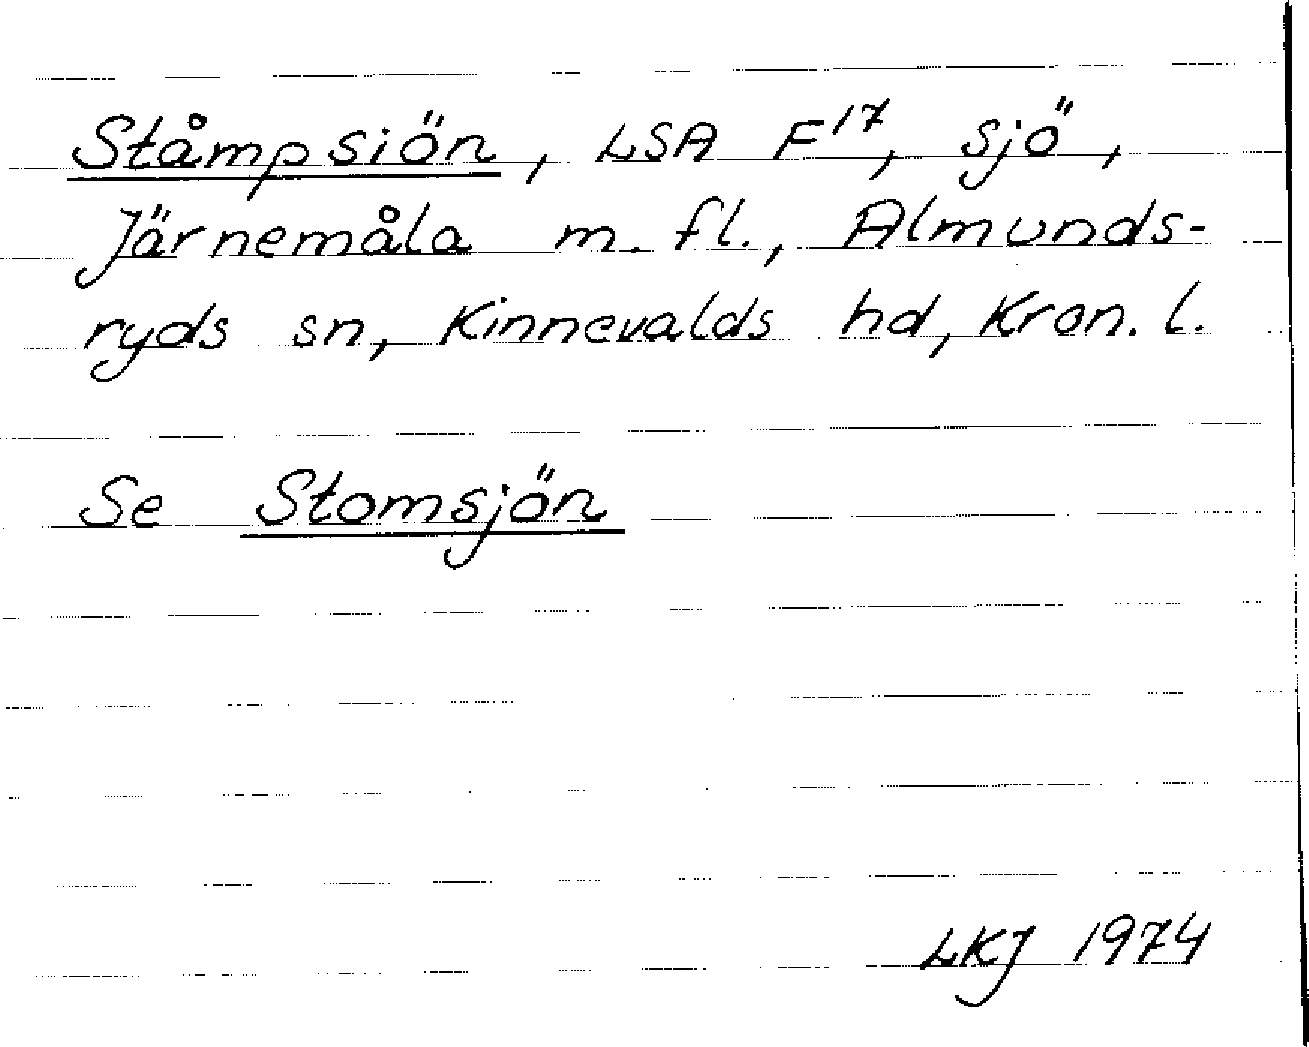 Ståmpsiön, LSA F¹⁷, sjö,
Järnemåla m. fl., Almunds-
ryds sn, Kinnevalds hd, Kron. l.
Se Stomsjön
LKJ 1974